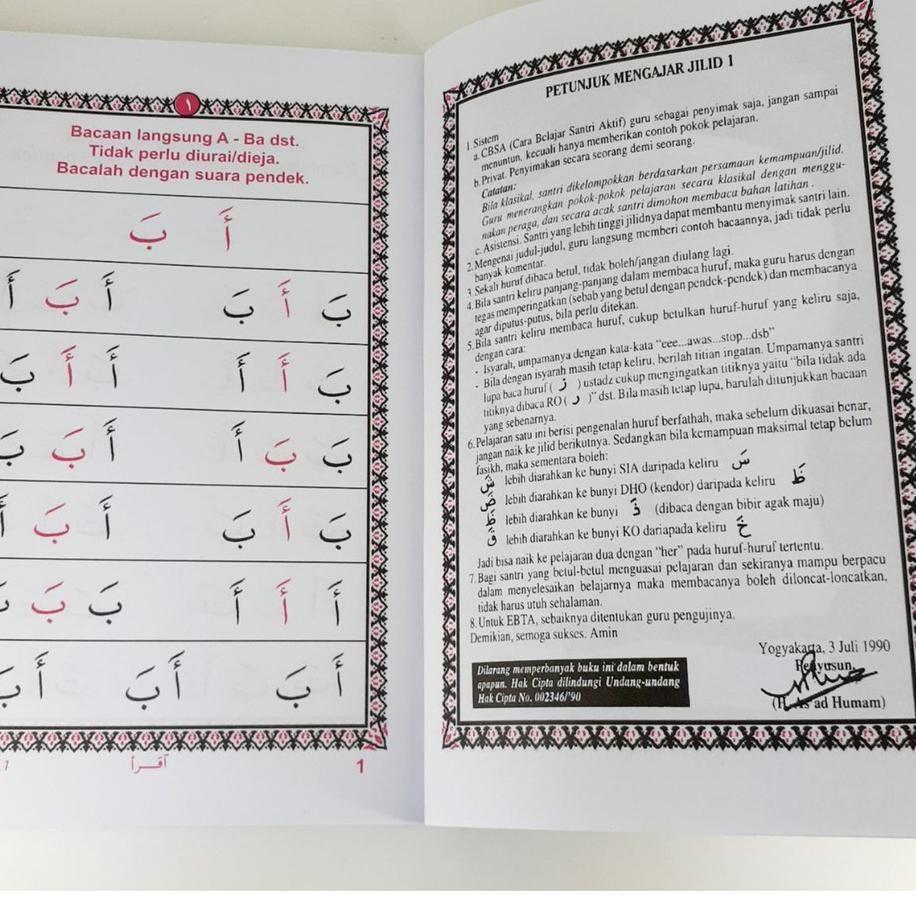 PETUNJUK MENGAJAR JILID 1
1. Sistem
a. CBSA (Cara Belajar Santri Aktif) guru sebagai penyimak saja, jangan sampai
menuntun, kecuali hanya memberikan contoh pokok pelajaran.
b. Privat. Penyimakan secara seorang demi seorang.
Catatan:
Bila klasikal, santri dikelompokkan berdasarkan persamaan kemampuan/jilid.
Guru menerangkan pokok-pokok pelajaran secara klasikal dengan menggu-
nakan peraga, dan secara acak santri dimohon membaca bahan latihan .
c. Asistensi. Santri yang lebih tinggi jilidnya dapat membantu menyimak santri lain.
2. Mengenai judul-judul, guru langsung memberi contoh bacaannya, jadi tidak perlu
banyak komentar.
3. Sekali huruf dibaca betul, tidak boleh/jangan diulang lagi.
4. Bila santri keliru panjang-panjang dalam membaca huruf, maka guru harus dengan
tegas memperingatkan (sebab yang betul dengan pendek-pendek) dan membacanya
agar diputus-putus, bila perlu ditekan.
5. Bila santri keliru membaca huruf, cukup betulkan huruf-huruf yang keliru saja,
dengan cara:
- Isyarah, umpamanya dengan kata-kata "eee...awas...stop...dsb"
- Bila dengan isyarah masih tetap keliru, berilah titian ingatan. Umpamanya santri
lupa baca huruf ( ز ) ustadz cukup mengingatkan titiknya yaitu "bila tidak ada
titiknya dibaca RO ( ر )" dst. Bila masih tetap lupa, barulah ditunjukkan bacaan
yang sebenarnya.
6. Pelajaran satu ini berisi pengenalan huruf berfathah, maka sebelum dikuasai benar,
jangan naik ke jilid berikutnya. Sedangkan bila kemampuan maksimal tetap belum
fasikh, maka sementara boleh:
شَ lebih diarahkan ke bunyi SIA daripada keliru سَ
ضَ lebih diarahkan ke bunyi DHO (kendor) daripada keliru ظَ
ظَ lebih diarahkan ke bunyi (dibaca dengan bibir agak maju)
قَ lebih diarahkan ke bunyi KO dariapada keliru خَ
Jadi bisa naik ke pelajaran dua dengan "her" pada huruf-huruf tertentu.
7. Bagi santri yang betul-betul menguasai pelajaran dan sekiranya mampu berpacu
dalam menyelesaikan belajarnya maka membacanya boleh diloncat-loncatkan,
tidak harus utuh sehalaman.
8. Untuk EBTA, sebaiknya ditentukan guru pengujinya.
Demikian, semoga sukses. Amin
Yogyakarta, 3 Juli 1990
Penyusun,
(H. As'ad Humam)
Dilarang memperbanyak buku ini dalam bentuk
apapun. Hak Cipta dilindungi Undang-undang
Hak Cipta No. 002346/'90
١
Bacaan langsung A - Ba dst.
Tidak perlu diurai/dieja.
Bacalah dengan suara pendek.
أَ بَ
بَ أَ بَ أَ بَ أَ
بَ أَ أَ أَ أَ بَ
بَ بَ أَ أَ بَ بَ
بَ أَ بَ أَ بَ أَ
أَ أَ أَ بَ بَ بَ
أَ بَ أَ بَ أَ بَ
1 اقرأ